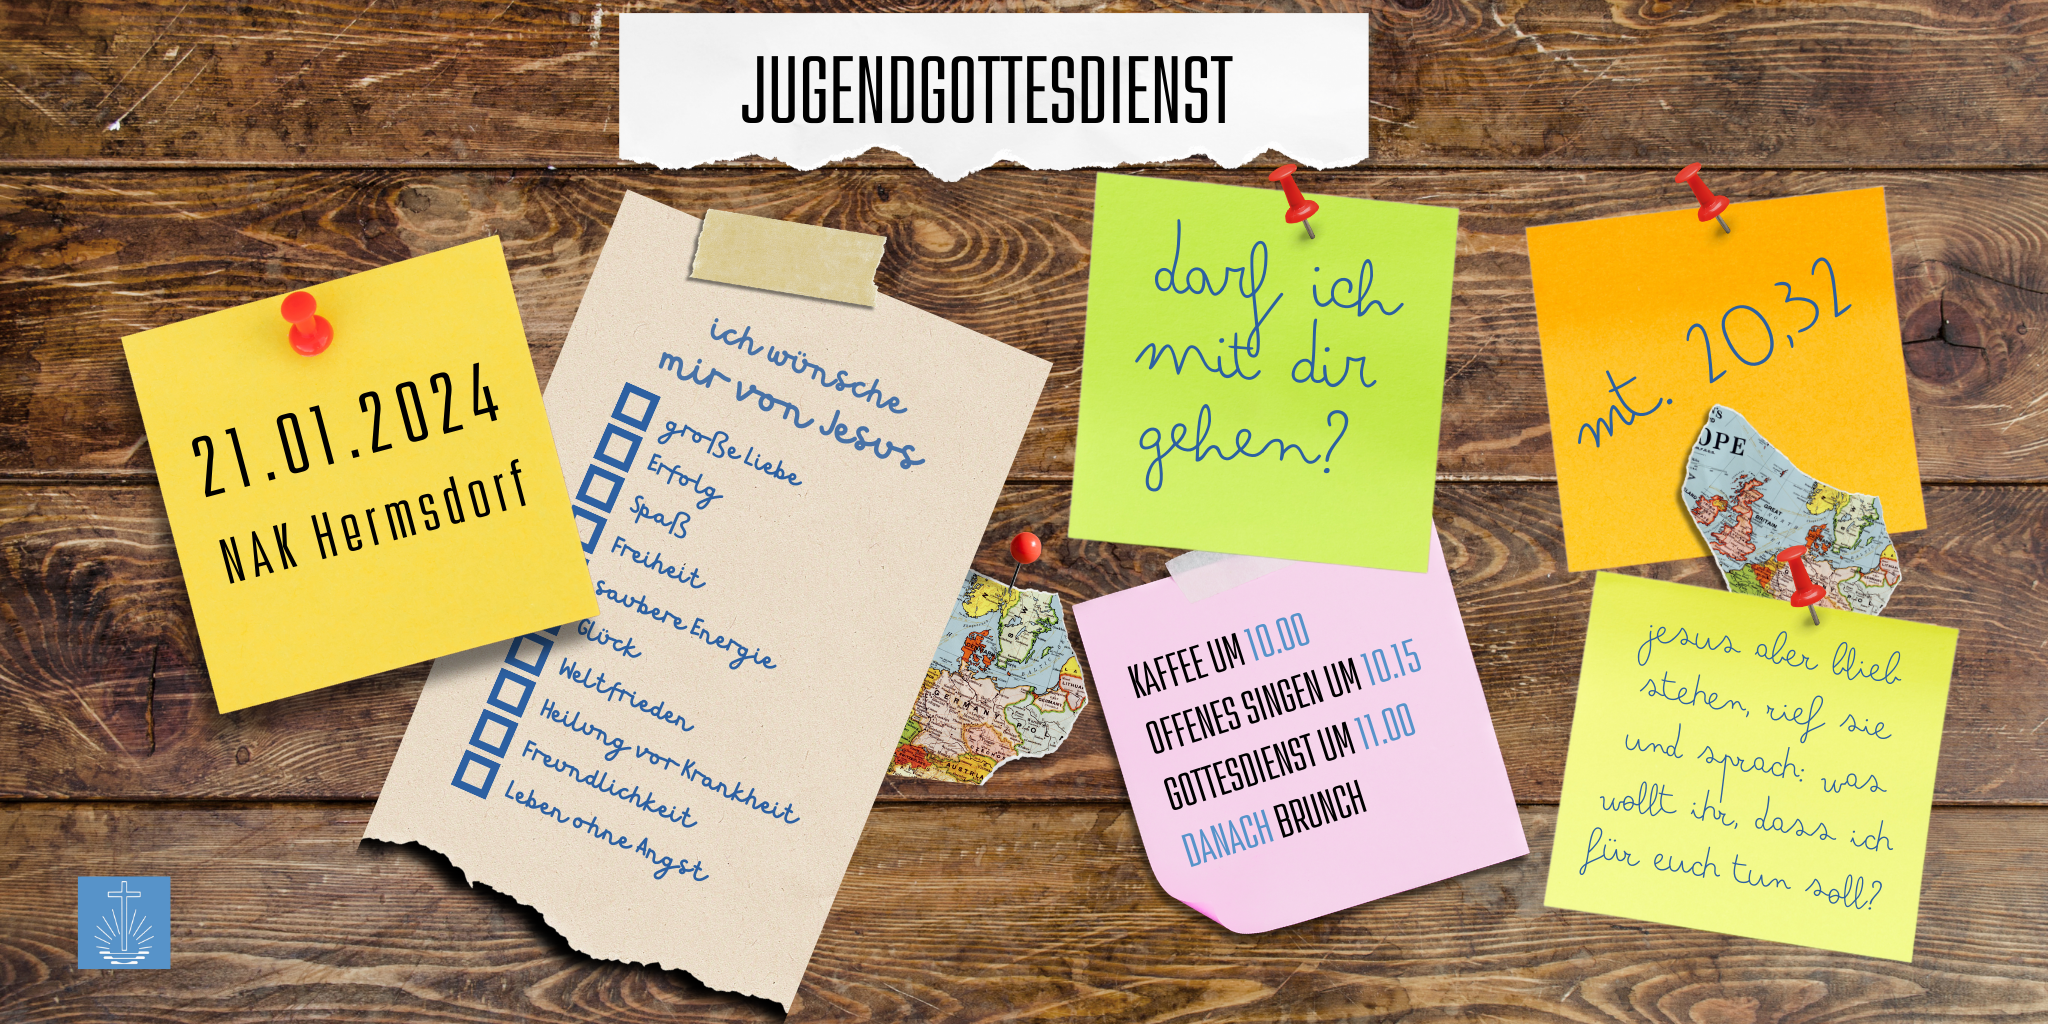 JUGENDGOTTESDIENST
21.01.2024
NAK Hermsdorf
ich wünsche
mir von Jesus
große Liebe
Erfolg
Spaß
Freiheit
saubere Energie
Glück
Weltfrieden
Heilung vor Krankheit
Freundlichkeit
Leben ohne Angst
darf ich
mit dir
gehen?
KAFFEE UM 10.00
OFFENES SINGEN UM 10.15
GOTTESDIENST UM 11.00
DANACH BRUNCH
mt. 20,32
OPE
GREAT
BRITAIN
jesus aber blieb
stehen, rief sie
und sprach: was
wollt ihr, dass ich
für euch tun soll?
GERMANY
AUSTRIA